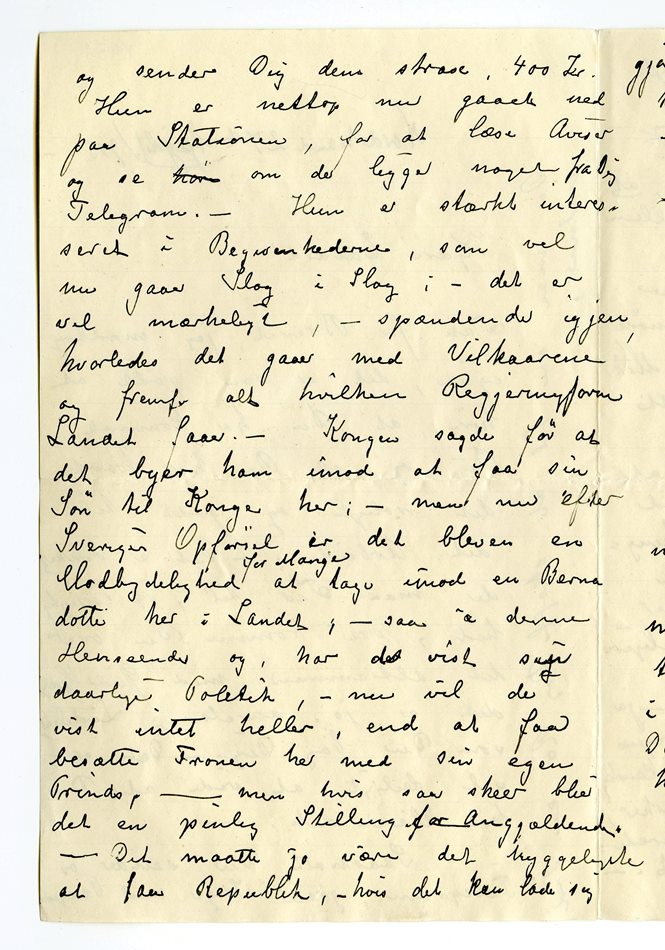 og sender Dig dem strax, 400 Kr.
Hun er nettop nu gaaet ned
paa Stationen, for at læse Aviser
og se om der ligger noget fra Dig
Telegram. — Hun er stærkt interes-
seret i Begivenhederne, som vel
nu gaaer Slag i Slag; – det er
vel mærkeligt, – spændende igjen,
hvorledes det gaaer med Vilkaarene
og fremfor alt hvilken Regjeringsform
Landet faaer. — Kongen sagde før at
det byer ham imod at faa sin
Søn til Konge her; – men nu efter
Sveriges Opførsel er det bleven en
Modbydelighed for Mange at tage imod en Berna
dotte her i Landet; – saa i denne
Henseende og, har det vist
daarlig Politik, – nu vil de
vist intet heller, end at faa
besatte Tronen her med sin egen
Prinds, — men hvis saa skeer blir
det en pinlig Stilling for Angjældende.
— Det maatte jo være det hyggeligste
at faa Republik, – hvis det kan lade sig